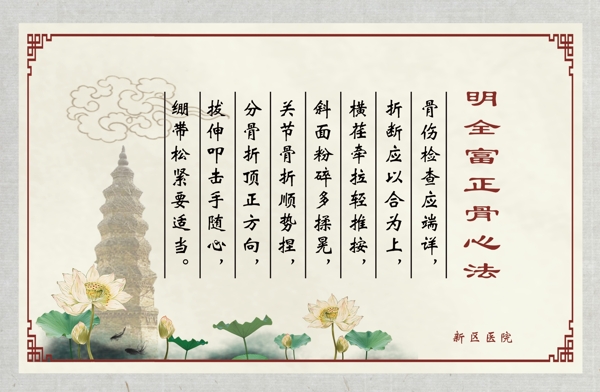 明全富正骨心法
骨伤检查应端详，
折断应以合为上，
横荏牵拉轻推按，
斜面粉碎多揉晃，
关节骨折顺势捏，
分骨折顶正方向，
拔伸叩击手随心，
绷带松紧要适当。
新区医院